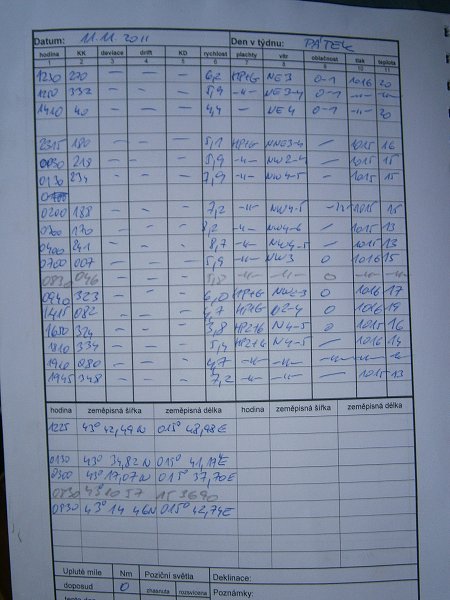 Datum: 11.11 2011 Den v týdnu: PÁTEK
hodina KK deviace drift KD rychlost plachty vítr oblačnost tlak teplota
1 2 3 4 5 6 7 8 9 10 11
1230 270 — — — 6,2 HP+G NE3 0-1 1016 20
1250 332 — — — 5,9 -"- NE3-4 0-1 -"- 20
1410 40 — — — 4,4 — NE4 0-1 -"- 20
2315 180 — — — 5,1 HP+G NNE3-4 — 1015 16
0030 218 — — — 5,9 -"- NW2-4 — 1015 15
0130 234 — — — 7,9 -"- NW4-5 — 1015 15
0200 188 — — — 7,2 -"- NW4-5 -"- 1015 15
170 — — — 8,2 -"- NW4-6 / 1015 13
0400 241 — — — 8,7 -"- NW4-5 — 1015 13
0700 007 — — — 5,9 -"- NW3 0 1016 15
0830 046 — — — 5,8 -"- -"- 0 -"- -"-
0940 323 — — — 6,0 HP+G NW2-3 0 1016 17
1415 082 — — — 4,7 HP+G N2-4 0 1016 19
1650 324 — — — 3,8 HP2+G N4-5 0 1015 16
1810 334 — — — 5,4 HP2+G N4-5 — 1016 14
1910 280 — — — 4,7 -"- -"- -"- -"- -"-
1945 348 — — — 7,2 -"- -"- 1015 13
hodina zeměpisná šířka zeměpisná délka hodina zeměpisná šířka zeměpisná délka
1225 43° 42,49N 015° 48,98E
0130 43° 34,82N 015° 41,19E
43° 17,07N 015° 37,70E
0830 43 20 57 15 3690
0930 43° 14 46N 015° 42,74E
Upluté míle Nm Poziční světla Deklinace:
doposud 0 zhasnuta rozsvícena Poznámky: